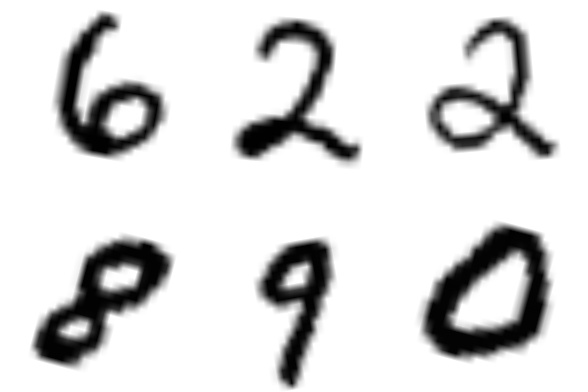 6 2 2
8 9 0